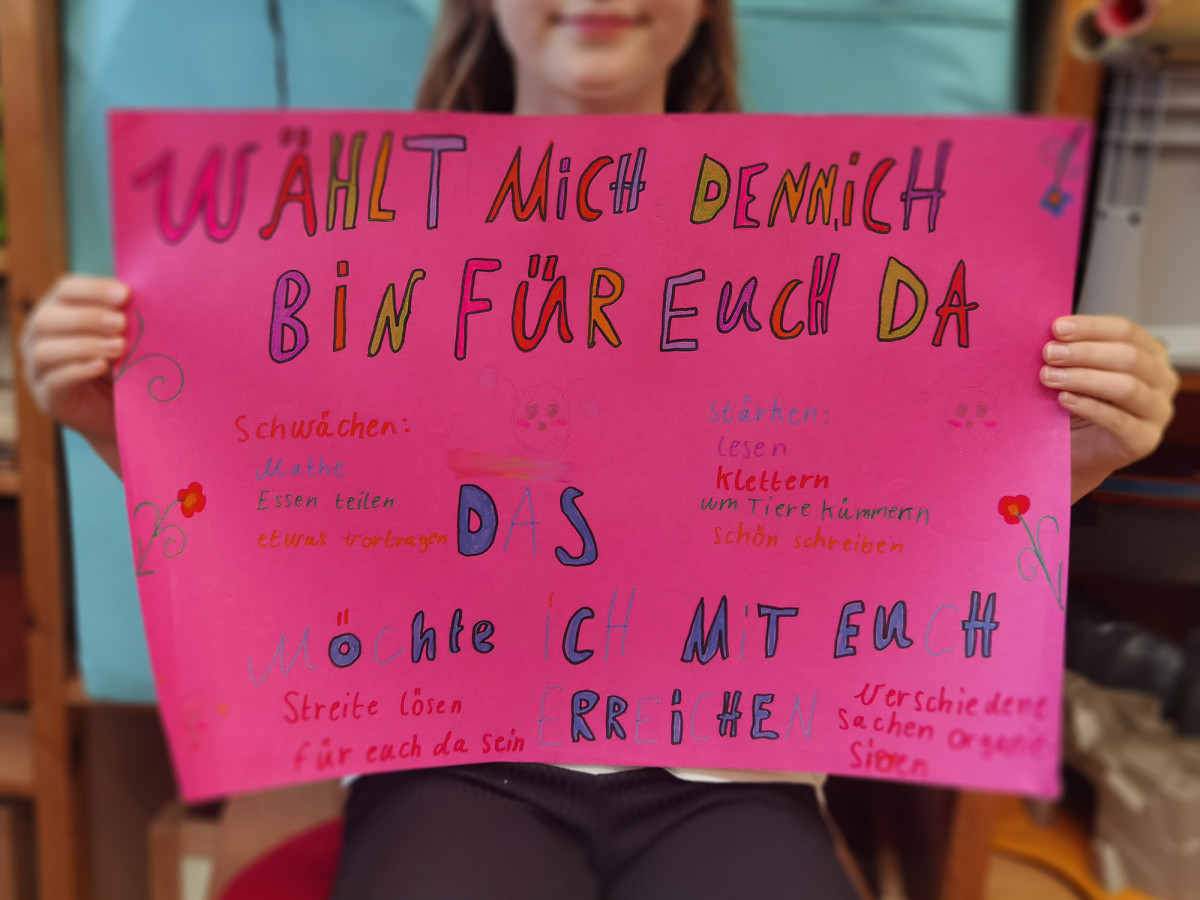 WÄHLT MiCH DENNiCH
BiN FÜR EUCH DA
Schwächen:
Mathe
Essen teilen
etwas vortragen
Stärken:
lesen
klettern
um Tiere kümmern
schön schreiben
DAS
MöChte iCH MiT EUCH
ERREiCHEN
Streite lösen
für euch da sein
Verschiedene
Sachen organi
Sieren